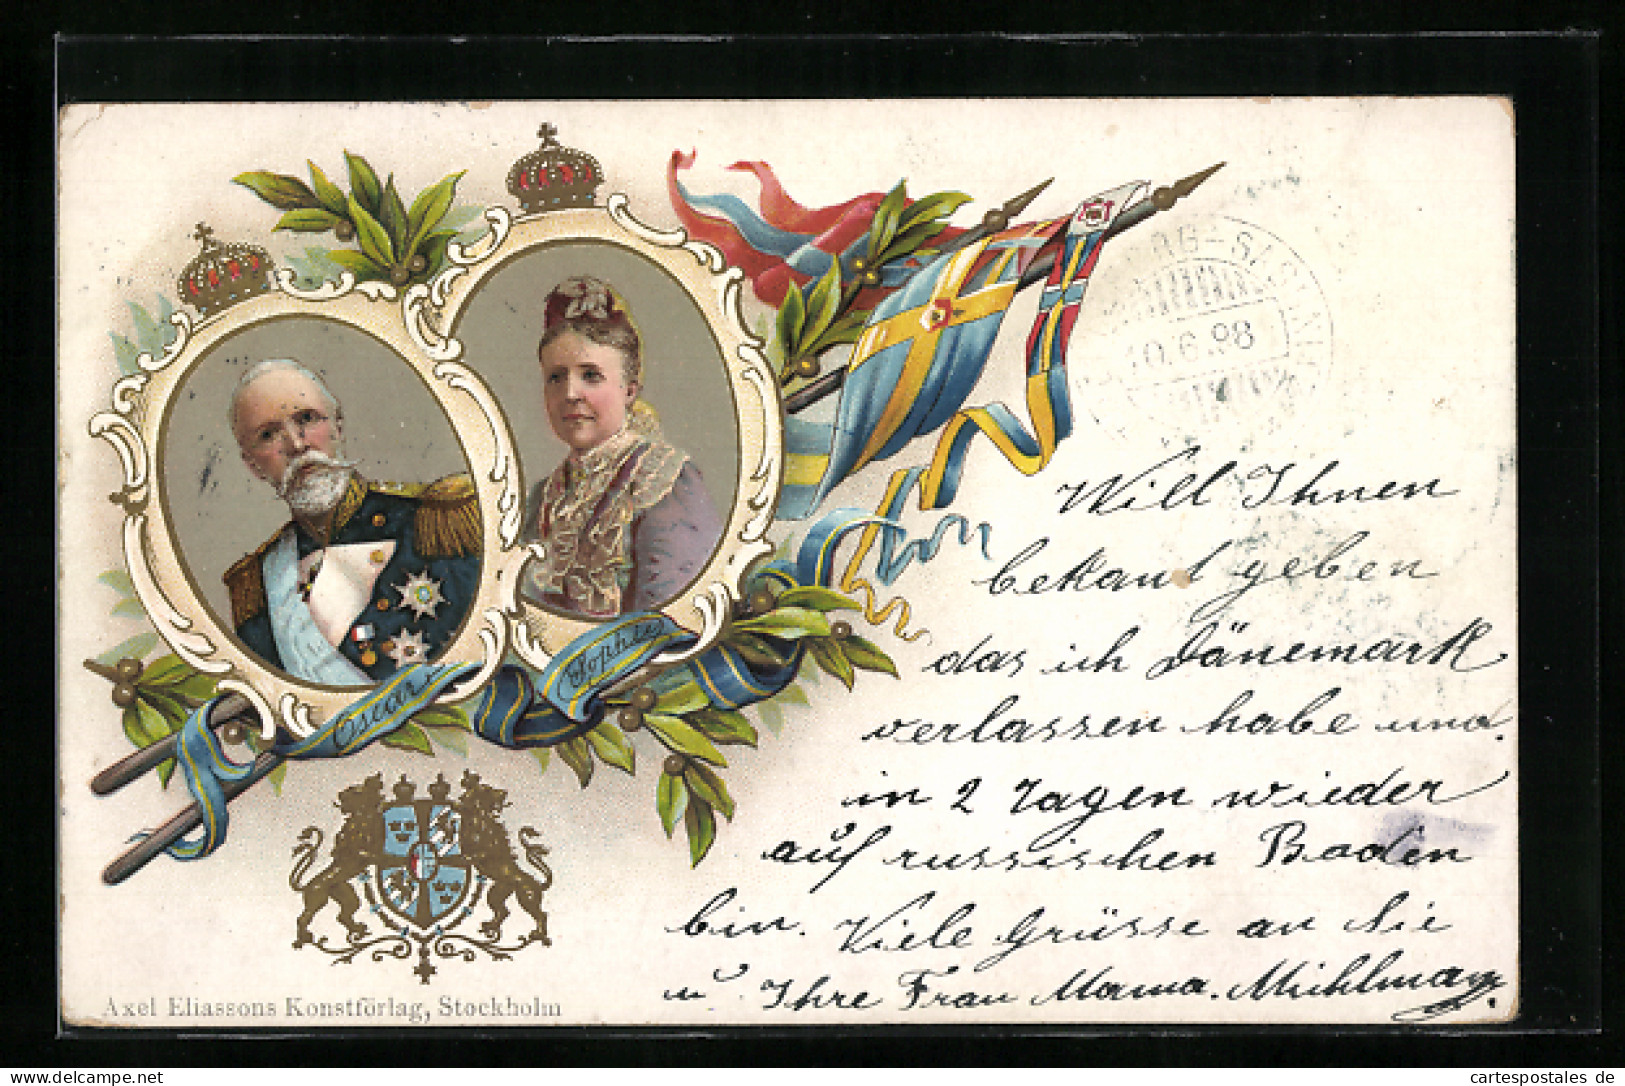 Oscar
Sophie
10.6.98
Will Ihnen
bekant geben
das ich Dänemark
verlassen habe und
in 2 Tagen wieder
auf russischen Boden
bin. Viele Grüsse an Sie
u Ihre Frau Mama. Mühlmann
Axel Eliassons Konstförlag, Stockholm
www.cartespostales.eu
cartespostales de